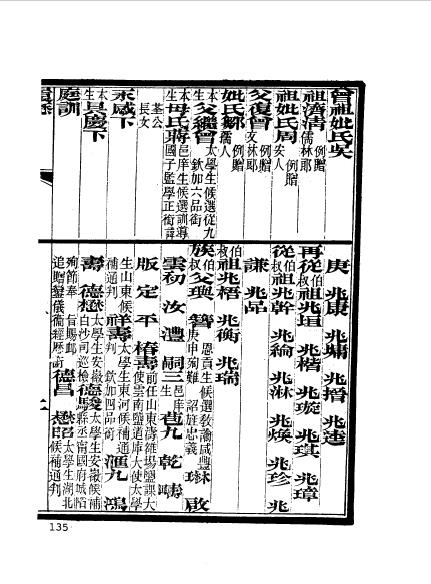 曾祖妣氏吳
祖濟清 例贈儒林郎
祖妣氏周 例贈安人
父復曾 例贈文林郎
妣氏鄒 例贈孺人
本生父繼曾 太學生候選從九 欽加六品銜
本生母氏蔣 邑庠生候選訓導 國子監學正銜諱
荃公
長女
永感下
本生具慶下
庭訓
庚 兆康 兆墉 兆搢 兆逵
再從伯叔祖兆垣 兆楷 兆璇 兆琪 兆璋
從伯叔祖兆幹 兆綸 兆淋 兆煐 兆珍 兆
謙 兆品
伯叔祖兆梧 兆衡 兆瑞
族伯叔父璵 簪 恩貢生候選教諭咸豐庚申殉難 詔旌忠義 琳 啟
雲礽 汝澧 嗣三 邑庠生 苞九 乾 疇
版 定 平 椿壽 前任山東濤雒場鹽課大使雲南鹽道庫大使太學
生山東候補通判 祥壽 太學生東河候補通判 欽加四品銜 滙九 鴻
壽 德懋 太學生安徽白沙司巡檢 德駿 太學生安徽候補縣丞甯國府城陷
殉節奉 旨賜卹追贈鑾儀衛經歷 德昌 懋昭 太學生湖北候補通判
135